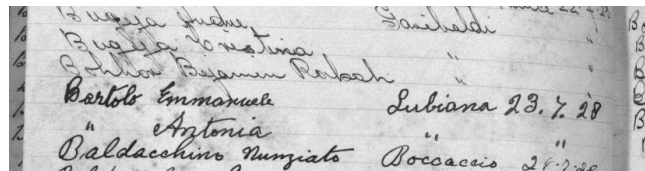 Bugeja Garibaldi
Bugeja Cristina " "
Benjamin Rabah " "
Bartolo Emmanuele Lubiana 23.7.28
" Antonia " "
Baldacchino Nunziato Boccaccio 24.7.28